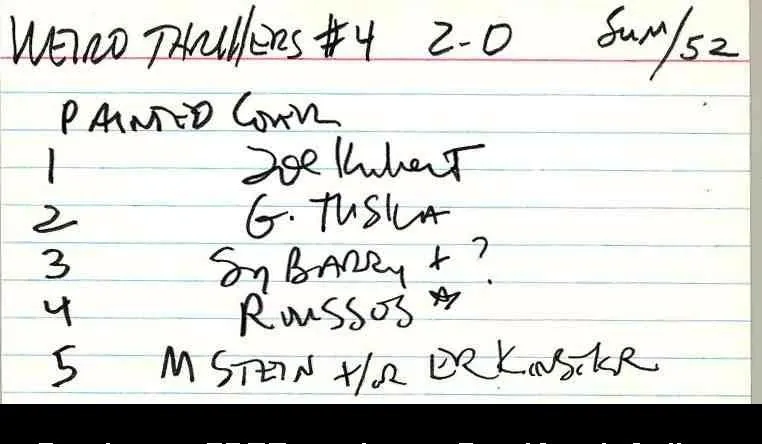 WEIRD THRILLERS #4 Z-D SUM/52
PAINTED COVER
1 Joe Kubert
2 G. TUSKA
3 Sy BARRY + ?
4 ROUSSOS ☆
5 M STEIN +/or ER KinstLER